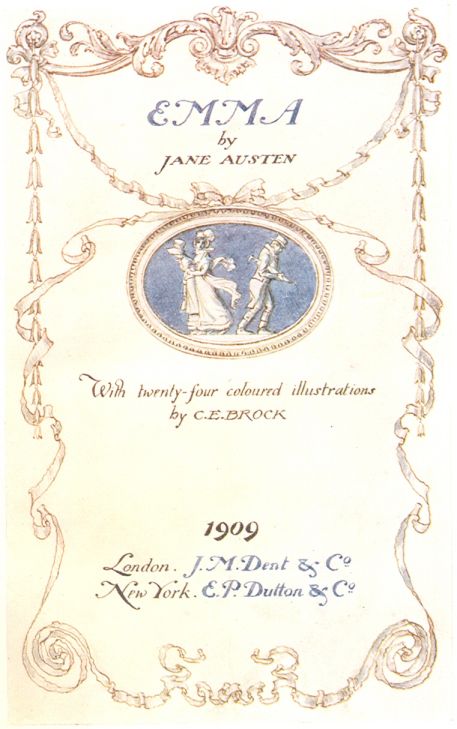 EMMA
by
JANE AUSTEN
With twenty-four coloured illustrations
by C.E.BROCK
1909
London. J.M.Dent & Co
New York. E.P.Dutton & Co